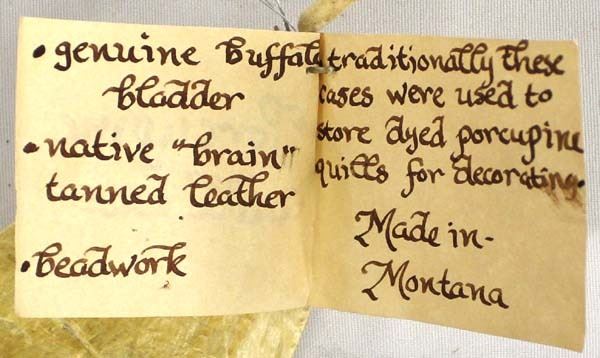 • genuine buffalo
bladder
• native "brain"
tanned leather
• beadwork
traditionally these
cases were used to
store dyed porcupine
quills for decorating.
Made in-
Montana